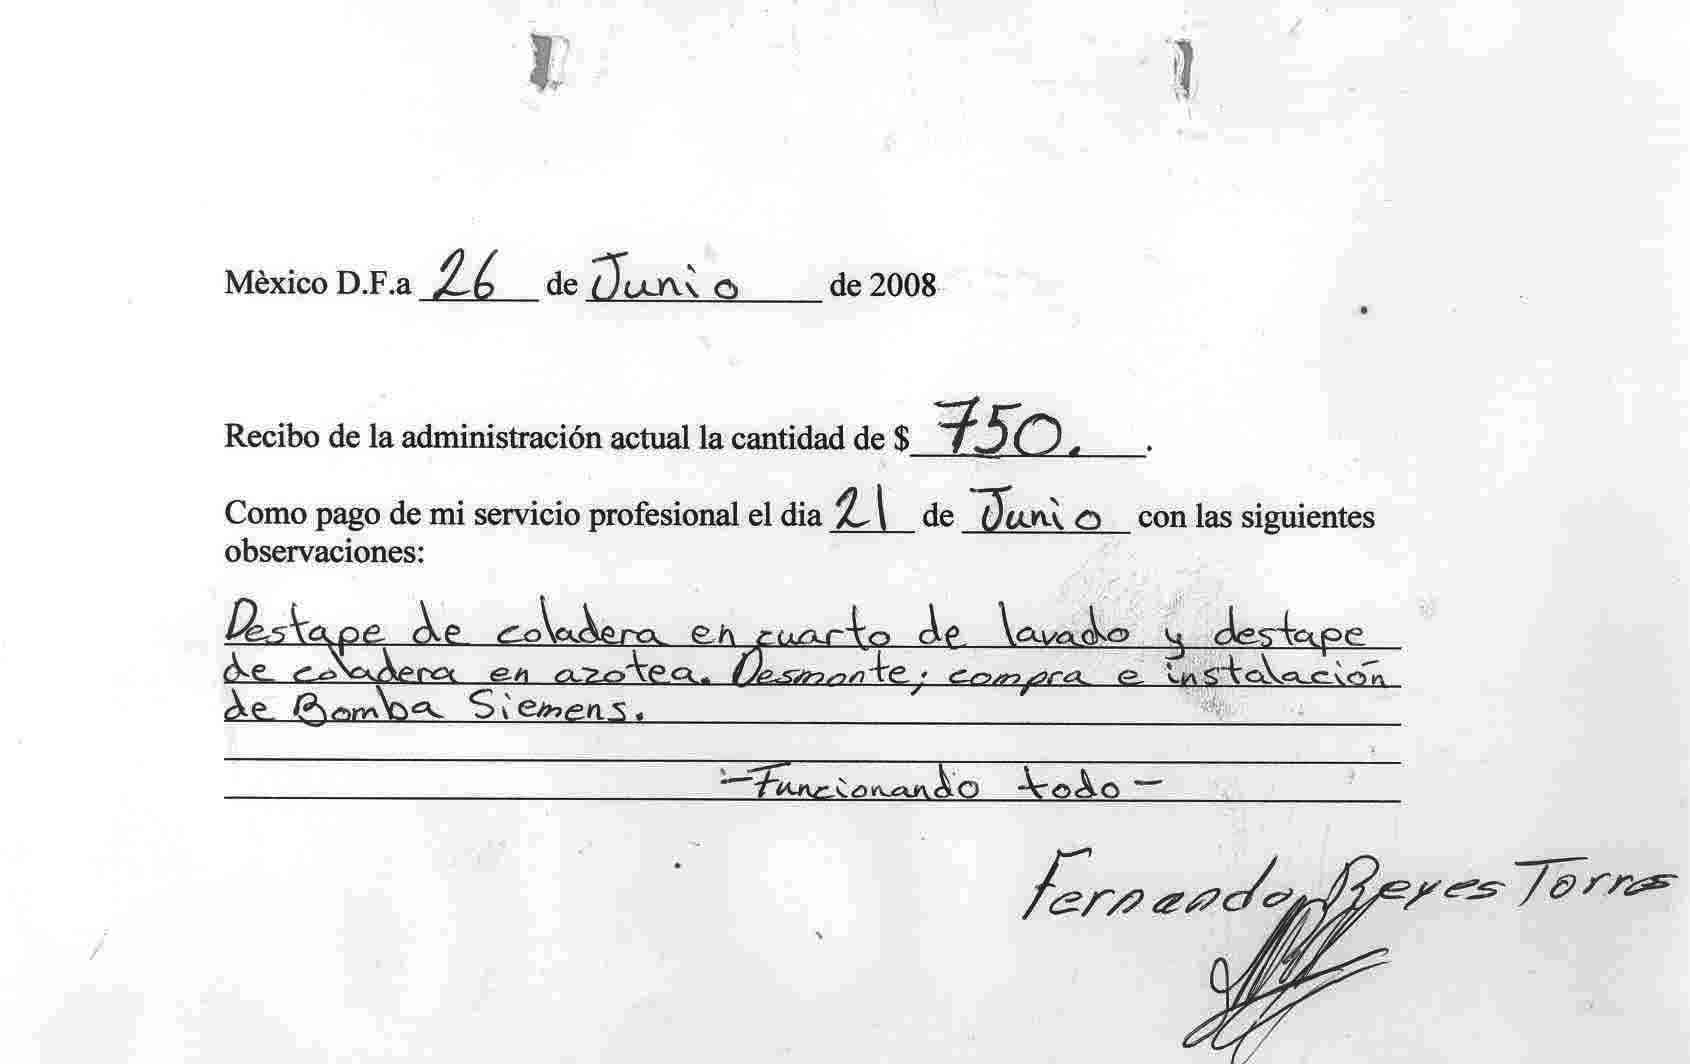 Mèxico D.F.a 26 de Junio de 2008
Recibo de la administración actual la cantidad de $ 750. .
Como pago de mi servicio profesional el dia 21 de Junio con las siguientes
observaciones:
Destape de coladera en cuarto de lavado y destape
de coladera en azotea. Desmonte; compra e instalación
de Bomba Siemens.
-Funcionando todo-
Fernando Reyes Torres